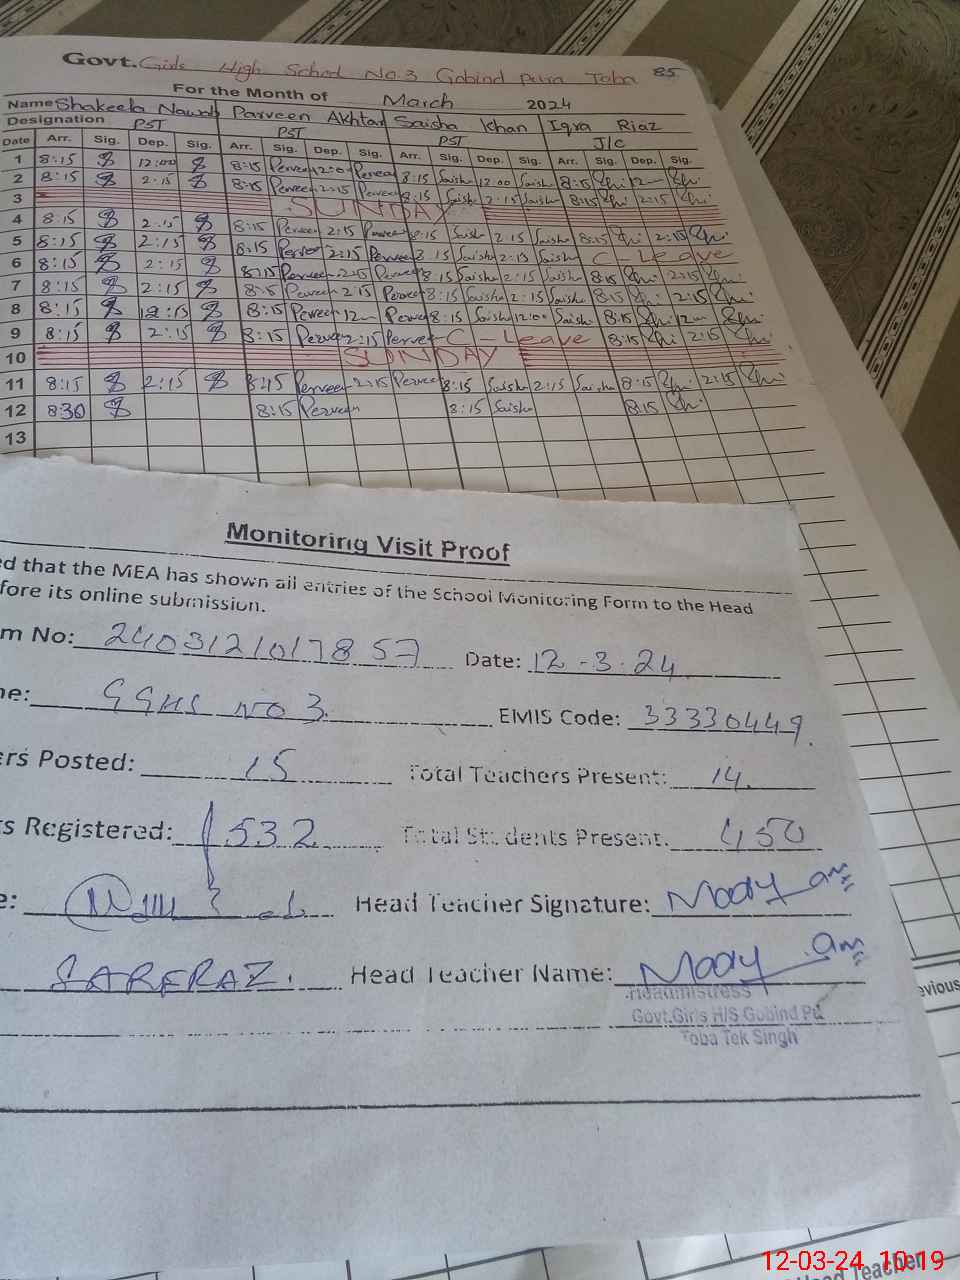 Govt. Girls High School No.3 Gobind Pura Toba 85
For the Month of March 2024
Name Shakeela Nawab Parveen Akhtar Saisha Khan Iqra Riaz
Designation PST PST PST J/C
Date Arr. Sig. Dep. Sig. Arr. Sig. Dep. Sig. Arr. Sig. Dep. Sig. Arr. Sig. Dep. Sig.
1 8:15 12:00 8:15 Perveen 12:00 Perveen 8:15 Saisha 12:00 Saisha 8:15 12
2 8:15 2:15 8:15 Perveen 2:15 Perveen 8:15 Saisha 2:15 Saisha 8:15 2:15
3 SUNDAY
4 8:15 2:15 8:15 Perveen 2:15 Perveen 8:15 Saisha 2:15 Saisha 8:15 2:15
5 8:15 2:15 8:15 Perveen 2:15 Perveen 8:15 Saisha 2:15 Saisha C-Leave
6 8:15 2:15 8:15 Perveen 2:15 Perveen 8:15 Saisha 2:15 Saisha 8:15 2:15
7 8:15 2:15 8:15 Perveen 2:15 Perveen 8:15 Saisha 2:15 Saisha 8:15 2:15
8 8:15 12:15 8:15 Perveen 12 Perveen 8:15 Saisha 12:00 Saisha 8:15 12
9 8:15 2:15 8:15 Perveen 2:15 Perveen C-Leave 8:15 2:15
10 SUNDAY
11 8:15 2:15 8:15 Perveen 2:15 Perveen 8:15 Saisha 2:15 Saisha 8:15 2:15
12 830 8:15 Perveen 8:15 Saisha 8:15
13
Monitoring Visit Proof
ed that the MEA has shown all entries of the School Monitoring Form to the Head
fore its online submission.
m No: 2403121017857 Date: 12-3-24
ne: GGHS NO 3. EMIS Code: 33330449.
ers Posted: 15 Total Teachers Present: 14.
ts Registered: 532 Total Students Present. 450
e: Head Teacher Signature:
SARFRAZ. Head Teacher Name:
Headmistress
Govt.Girls H/S Gobind Pu
Toba Tek Singh
evious
Head Teacher
12-03-24 10:19